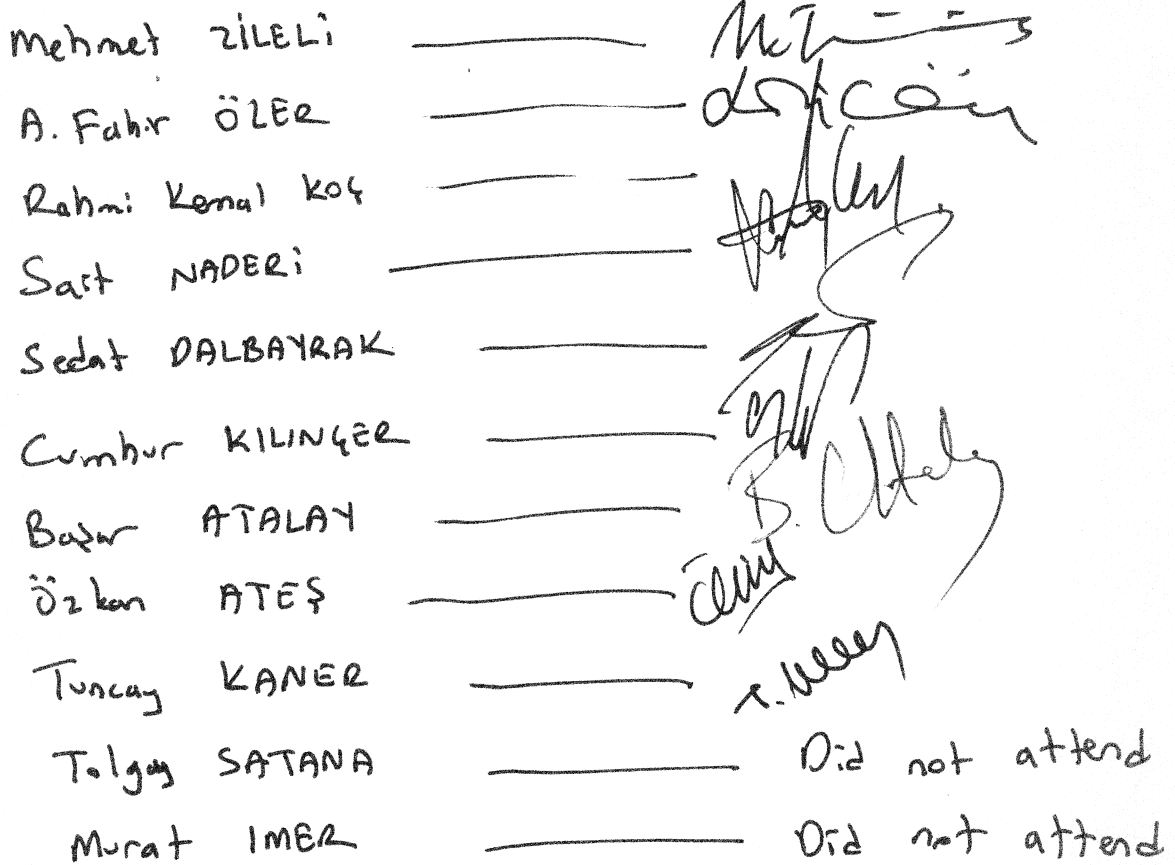 Mehmet ZİLELİ
A. Fahir ÖZER
Rahmi Kemal KOÇ
Sait NADERİ
Sedat DALBAYRAK
Cumhur KILINÇER
Başar ATALAY B. Atalay
Özkan ATEŞ
Tuncay KANER
Tolgay SATANA Did not attend
Murat IMER Did not attend